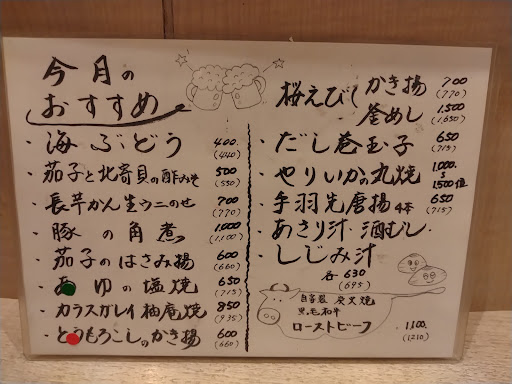 今月の
おすすめ
・海ぶどう 400 (440)
・茄子と北寄貝の酢みそ 500 (550)
・長芋かん生ウニのせ 700 (770)
・豚の角煮 1,000 (1,100)
・茄子のはさみ揚 600 (660)
・あゆの塩焼 650 (715)
・カラスガレイ柚庵焼 850 (935)
・とうもろこしのかき揚 600 (660)
桜えび かき揚 700 (770)
釜めし 1,500 (1,650)
・だし巻玉子 650 (715)
・やりいかの丸焼 1,000〜1,500位
・手羽先唐揚 4本 650 (715)
・あさり汁・酒むし・
・しじみ汁
各 630 (695)
自家製 炭火焼
黒毛和牛
ローストビーフ 1,100 (1,210)